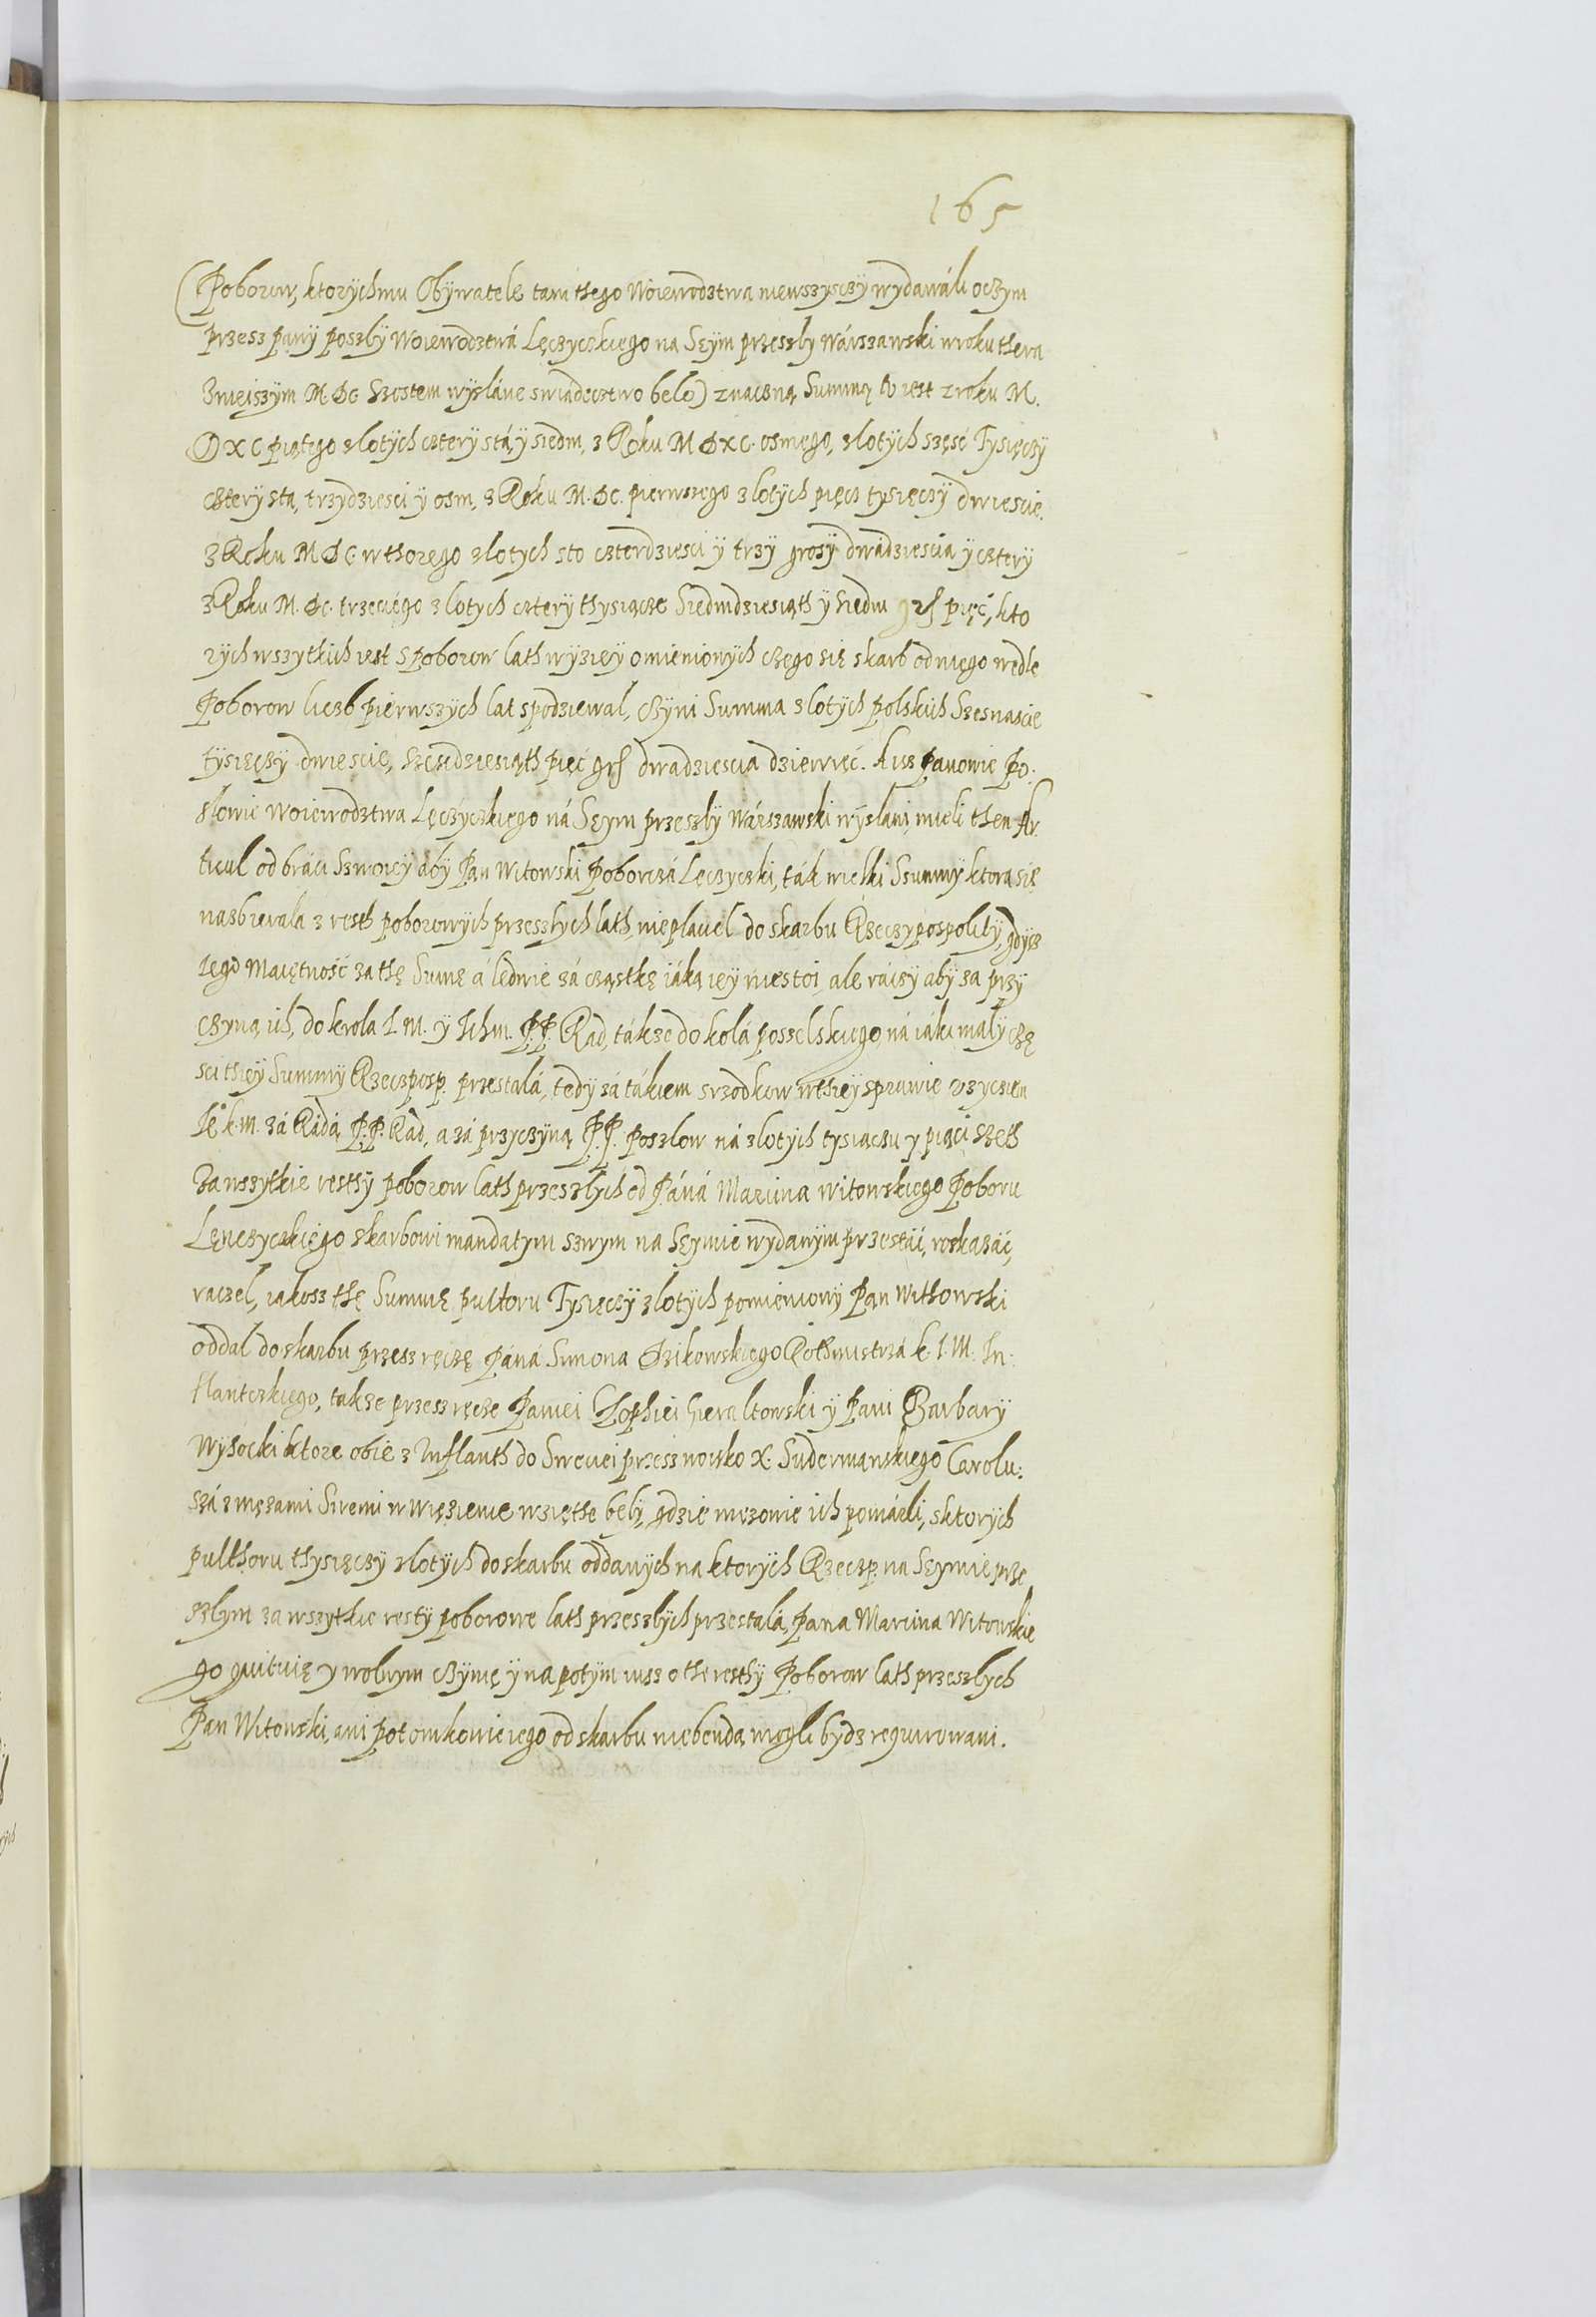 165
(Poborow, ktorÿchmu Obÿwatele tam thego Woiewodztwa niewszysczÿ wydawáli oczym
przesz panÿ poszlÿ Woiewodztwá Lęczyczkiego na Sęÿm przeszly Wárszawski wroku thera
znieiszÿm M.DC Szostem wÿsláne swiadecztwo beło) znaczną Summę to iest z roku M.
DXC piątego zlotÿch czterÿ stá ÿ siedm, z Roku M DXC. osmego, zlotÿch szęsć Tysięczÿ
czterÿ sta, trzydziesci ÿ osm, z Roku M.DC. pierwszego zlotÿch pięcz tysięczÿ dwiescie.
z Roku MDC. wthorego zlotych sto czterdziesci ÿ trzÿ grosÿ dwadziescia ÿ czterÿ
z Roku M.DC. trzeciégo zlotych czterÿ thysiącze Siedmdziesiąth ÿ Siedm grß pięć, kto
rÿch wszytkich iest s poborow lath wÿzięÿ omienionÿch czego się skarb od niego wedle
Poborow liczb pierwszÿch lat spodziewal, czÿni Summa zlotÿch polskich Szesnascie
tÿsięczÿ dwiescie, szęsdziesiąth pięć grß dwadziescia dziewięć. A isz Panowie Po:
slowie Woiewodztwa Lęczyczkiego ná Sęym przeszlÿ Wárszawski wÿslani, mieli then Ar
ticul od braci Szwoieÿ abÿ Pan Witowski Poborczá Lęczyczki, ták wielki Ssummÿ ktora się
nazbierala z resth poborowÿch przeszlÿch lath, nieplaciel do skarbu Rzeczypospolitÿ, gdysz
Iego Maiętność za thę Sumę á ledwie zá cząstkę iáką ieÿ niestoi, ale ráczÿ abÿ za przÿ
czyną ich, do krola I.M. ÿ Ichm. P.P. Rad, tákze do kolá posselskiego, ná iáki malÿ czę
sci thięÿ Summÿ Rzeczposp. przestalá, tedÿ zá tákiem srzodkow wthieÿ sprawie vzyciem
Ie° k.m. zá Rádą P.P. Rad, a zá przyczÿną P.P. Poszlow ná zlotÿch tysiączu y pięci szeth
Za wszÿtkie resthÿ poborow lath przeszlÿch od Páná Marcina Witowskiego Poborci
Lęnczyczkiego skarbowi mandatym szwym na Sęymie wydanÿm przestać, roskazáć,
raczel, iakosz thę Summę pultoru Tysięczÿ zlotÿch pomienionÿ Pan Withowski
oddal do skarbu przesz ręczę Páná Simona Dzikowskiego Rothmistrzá k. I.M. In:
flantczkiego, takze przesz ręcze Paniei Zophiei Gieraltowski ÿ Pani Barbarÿ
Wysocki ktore obie z Inflanth do Sweciei przesz woisko X. Sudermanskiego Carolu:
szá z męzami Swemi w więzienie wzięthe belÿ, gdzie męzowie ich pomárli, sktorÿch
pulthoru thysięczÿ zlotÿch do skarbu oddanÿch na ktorÿch Rzeczp. na Seymie prze
szlym za wszytkie restÿ poborowe lath przeszlÿch przestalá, Pana Marcina Witowskie
go quituię y wolnym czÿnię ÿ na potÿm iusz o the resthÿ Poborow lath przeszlych
Pan Witowski, ani potomkowie iego od skarbu niebenda, mogli bydz requirowani.